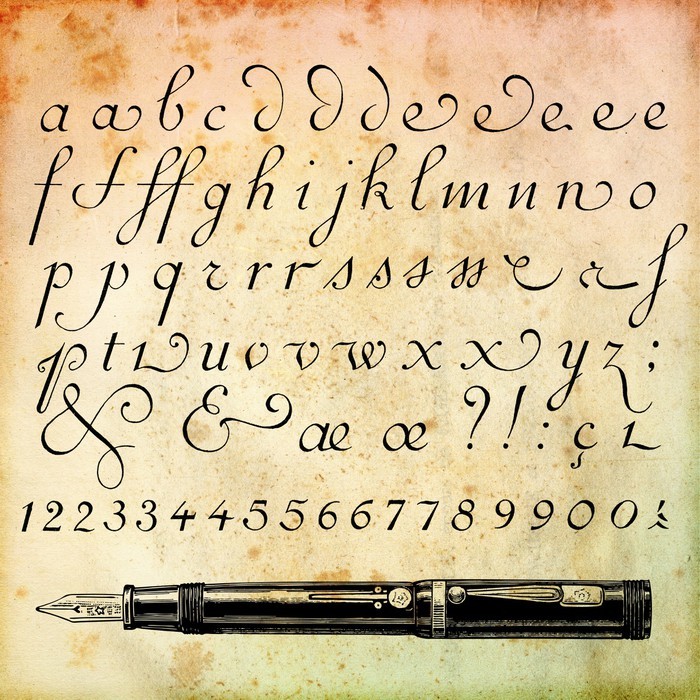 a a b c d d d e e e e e
f f ff g h i j k l m n n o
p p q r r r s s s
p t u o v w x x y z ;
& & æ œ ? ! : ç
1 2 2 3 3 4 4 5 5 6 6 7 7 8 9 9 0 0